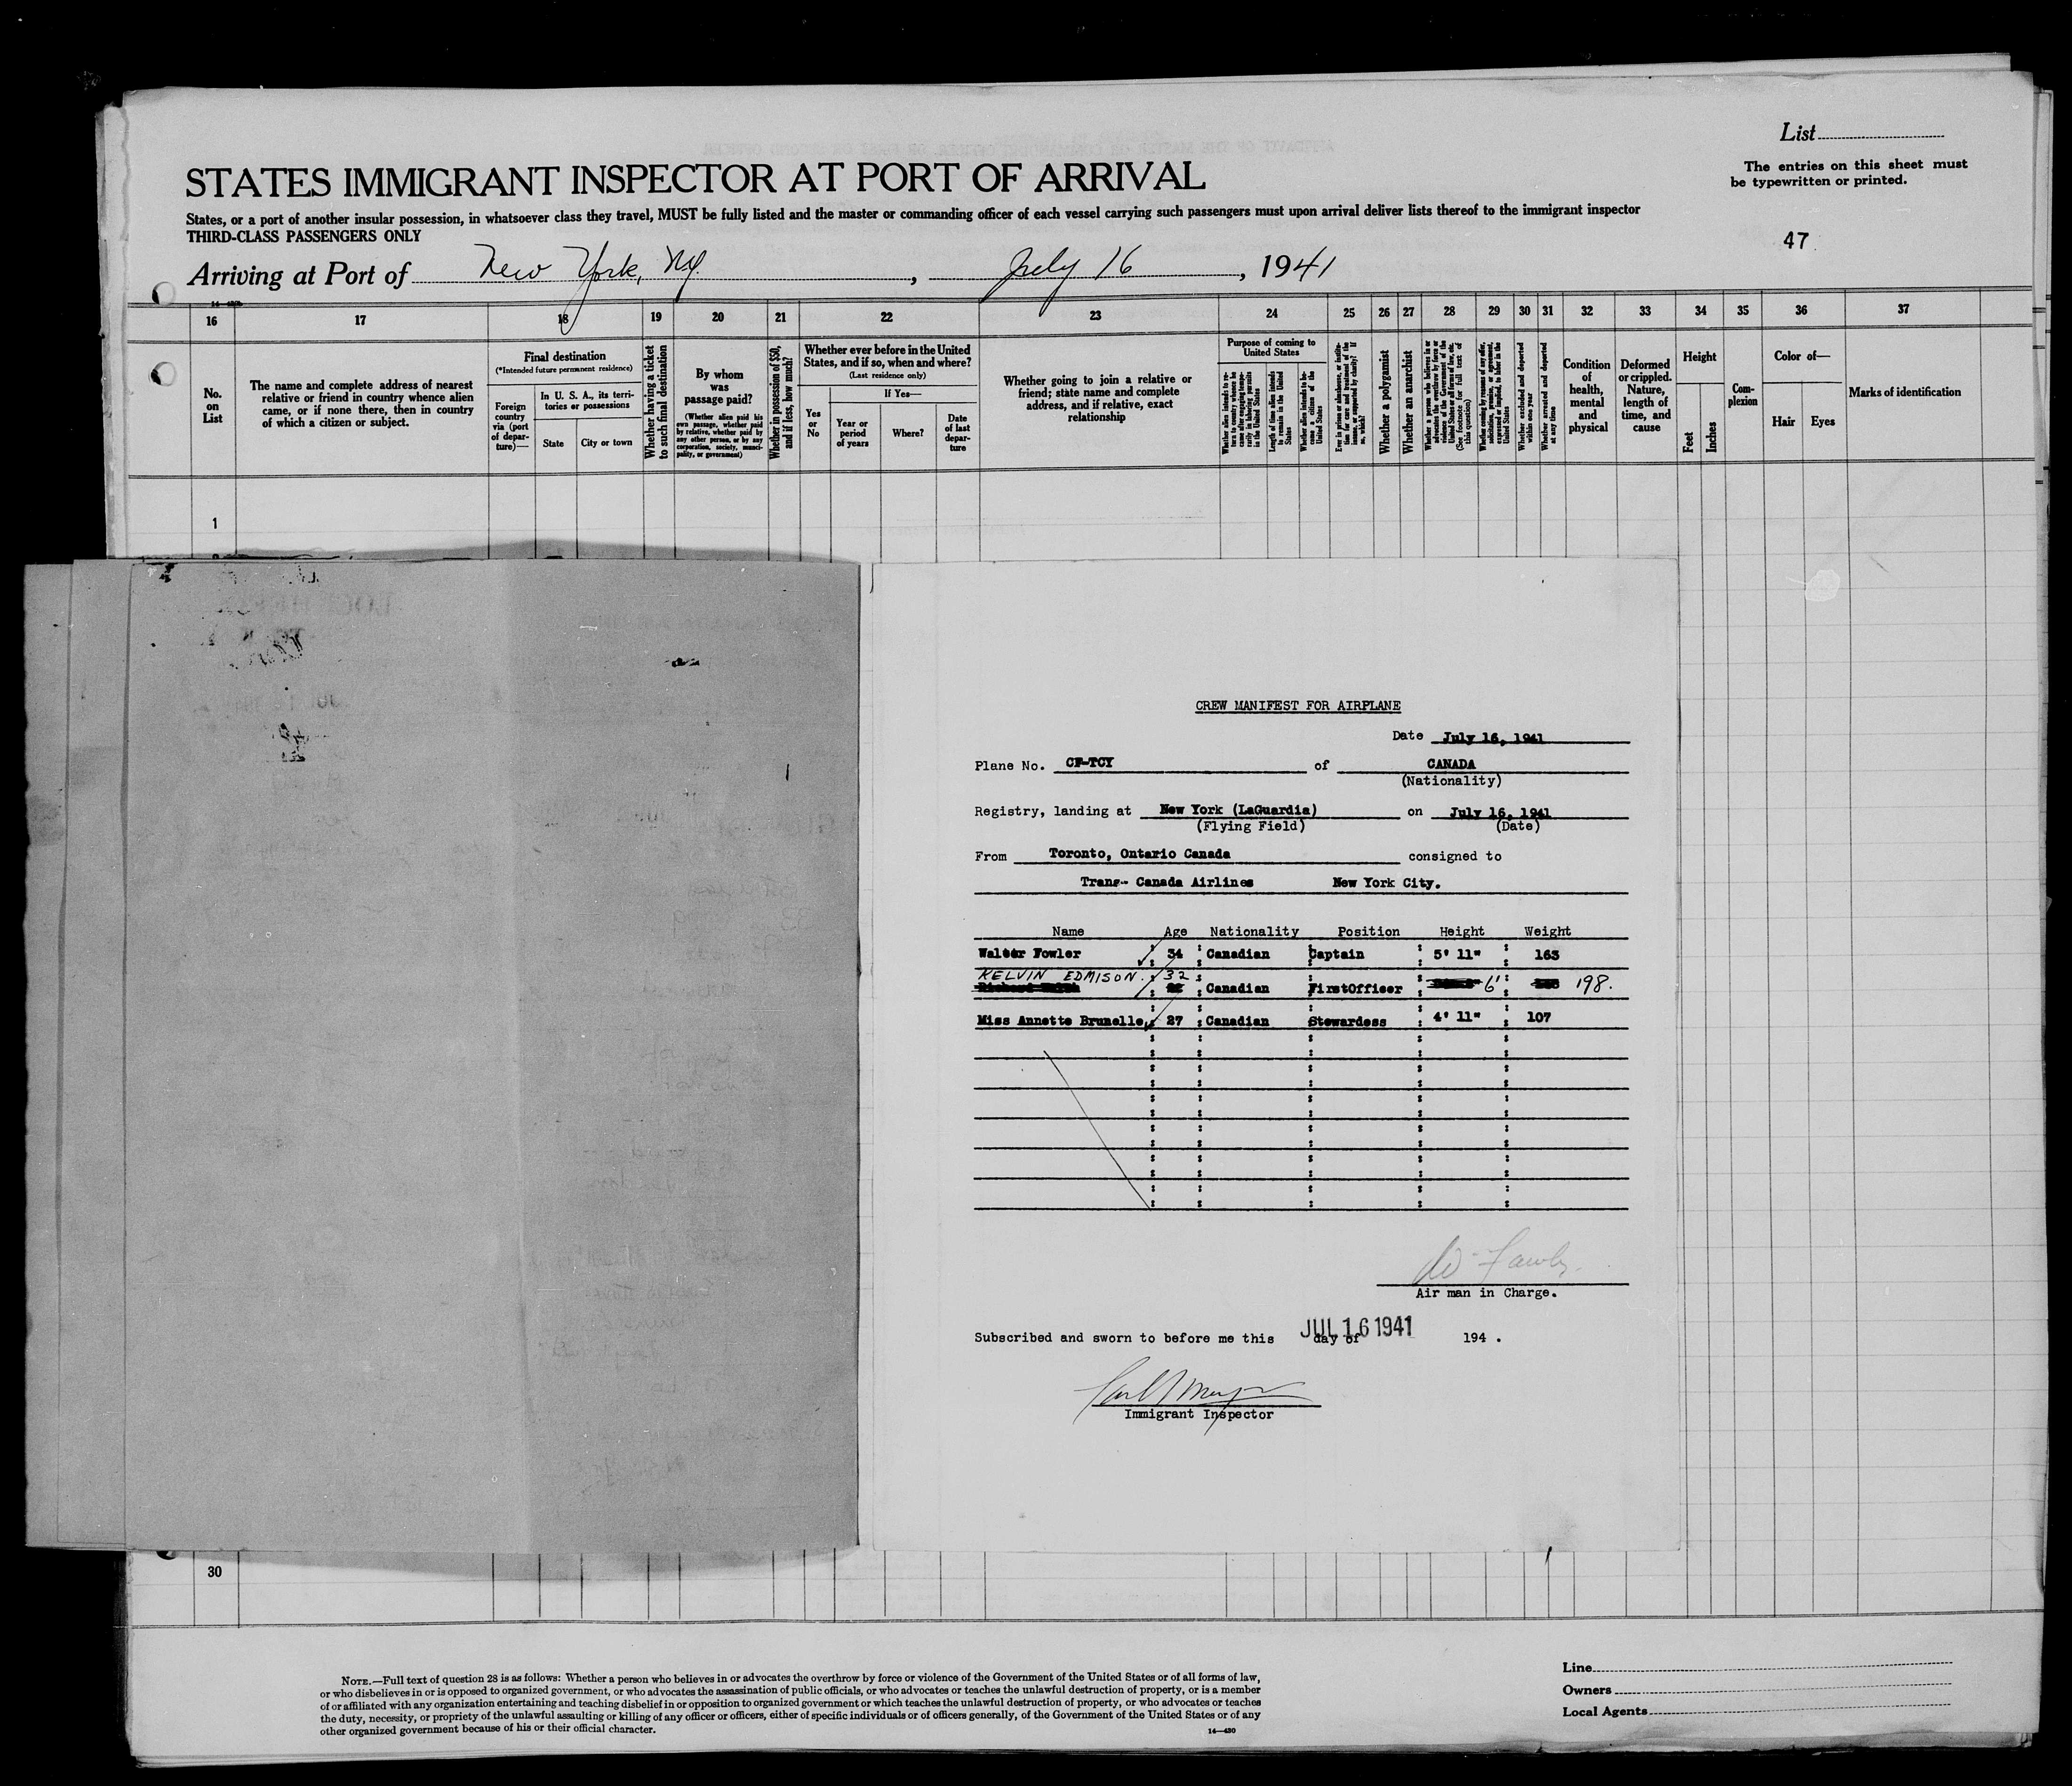 List
STATES IMMIGRANT INSPECTOR AT PORT OF ARRIVAL
The entries on this sheet must
be typewritten or printed.
States, or a port of another insular possession, in whatsoever class they travel, MUST be fully listed and the master or commanding officer of each vessel carrying such passengers must upon arrival deliver lists thereof to the immigrant inspector
THIRD-CLASS PASSENGERS ONLY
47
Arriving at Port of New York, NY. , July 16 , 1941
16 17 18 19 20 21 22 23 24 25 26 27 28 29 30 31 32 33 34 35 36 37
No.
on
List
The name and complete address of nearest
relative or friend in country whence alien
came, or if none there, then in country
of which a citizen or subject.
Final destination
(*Intended future permanent residence)
Foreign
country
via (port
of depar-
ture)—
In U. S. A., its terri-
tories or possessions
State
City or town
Whether having a ticket
to such final destination
By whom
was
passage paid?
(Whether alien paid his
own passage, whether paid
by relative, whether paid by
any other person, or by any
corporation, society, munici-
pality, or government)
Whether in possession of $50,
and if less, how much?
Whether ever before in the United
States, and if so, when and where?
(Last residence only)
If Yes—
Yes
or
No
Year or
period
of years
Where?
Date
of last
depar-
ture
Whether going to join a relative or
friend; state name and complete
address, and if relative, exact
relationship
Purpose of coming to
United States
Whether alien intends to re-
turn to country whence he
came after engaging tempo-
rarily in laboring pursuits
in the United States
Length of time alien intends
to remain in the United
States
Whether alien intends to be-
come a citizen of the
United States
Whether a polygamist
Whether an anarchist
Whether excluded and deported
within one year
Whether arrested and deported
at any time
Condition
of
health,
mental
and
physical
Deformed
or crippled.
Nature,
length of
time, and
cause
Height
Feet
Inches
Com-
plexion
Color of—
Hair
Eyes
Marks of identification
1
CREW MANIFEST FOR AIRPLANE
Date July 16, 1941
Plane No. CF-TCY of CANADA
(Nationality)
Registry, landing at New York (LaGuardia) on July 16, 1941
(Flying Field) (Date)
From Toronto, Ontario Canada consigned to
Trans- Canada Airlines New York City.
Name Age Nationality Position Height Weight
Walter Fowler 34 Canadian Captain 5' 11" 163
KELVIN EDMISON. 32
Canadian FirstOfficer 6' 198.
Miss Annette Brunelle 27 Canadian Stewardess 4' 11" 107
W. Fowler
Air man in Charge.
Subscribed and sworn to before me this day of 194 .
JUL 16 1941
Immigrant Inspector
30
NOTE.—Full text of question 28 is as follows: Whether a person who believes in or advocates the overthrow by force or violence of the Government of the United States or of all forms of law,
or who disbelieves in or is opposed to organized government, or who advocates the assassination of public officials, or who advocates or teaches the unlawful destruction of property, or is a member
of or affiliated with any organization entertaining and teaching disbelief in or opposition to organized government or which teaches the unlawful destruction of property, or who advocates or teaches
the duty, necessity, or propriety of the unlawful assaulting or killing of any officer or officers, either of specific individuals or of officers generally, of the Government of the United States or of any
other organized government because of his or their official character.
14—430
Line
Owners
Local Agents